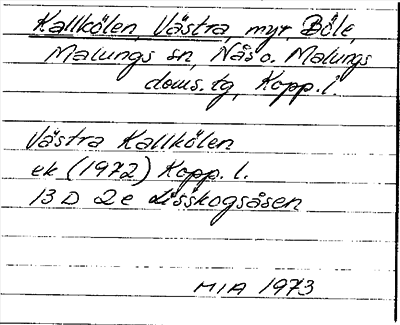 Kallkölen, Västra, myr Böle,
Malungs sn, Nås o. Malungs
doms.tg, Kopp.l.
Västra Kallkölen
ek (1972) Kopp. l.
13 D 2e Lisskogsåsen
MIA 1973